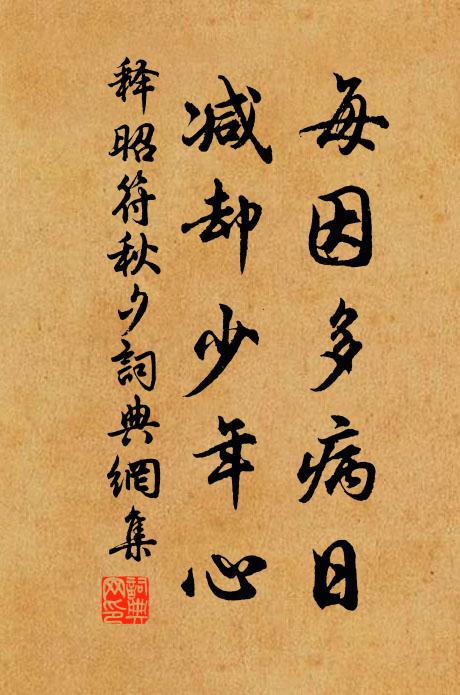 每因多病日
减却少年心
释昭符秋夕詞典網集
詞典
网印